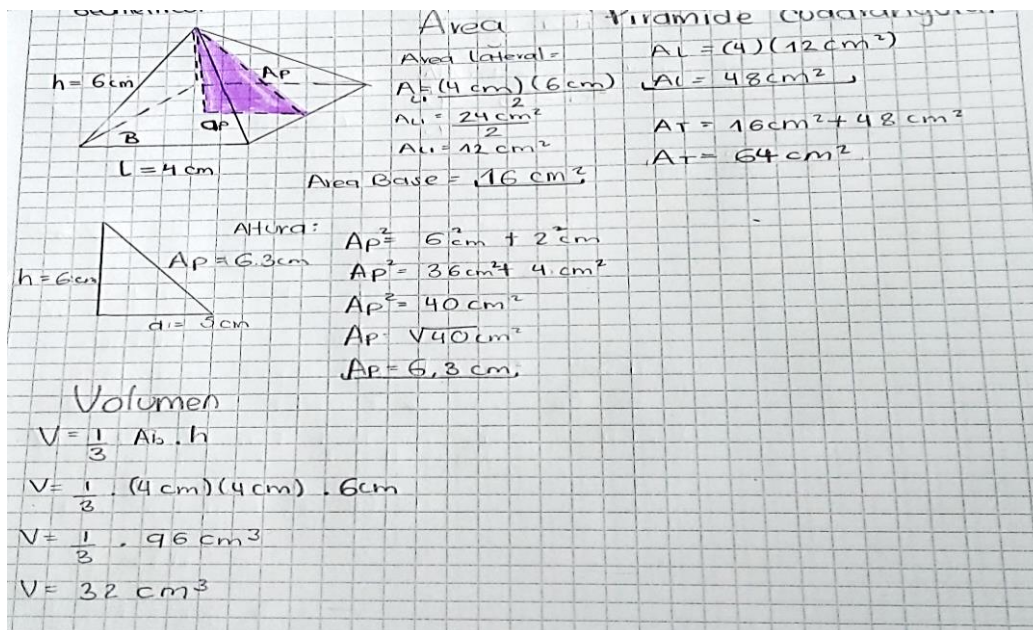 Area
h = 6cm
Ap
ap
B
L = 4 cm
Area Lateral =
AL1 = (4 cm)(6cm)
2
AL1 = 24cm²
2
AL1 = 12 cm²
Area Base = 16 cm²
AL = (4)(12cm²)
AL = 48cm²
AT = 16cm² + 48 cm²
AT = 64 cm²
h = 6cm
Ap = 6.3cm
Altura:
Ap² = 6²cm + 2²cm
Ap² = 36cm² + 4 cm²
Ap² = 40 cm²
Ap = √40cm²
Ap = 6,3 cm
Volumen
V = 1/3 Ab . h
V = 1/3 . (4 cm)(4 cm) . 6cm
V = 1/3 . 96 cm³
V = 32 cm³